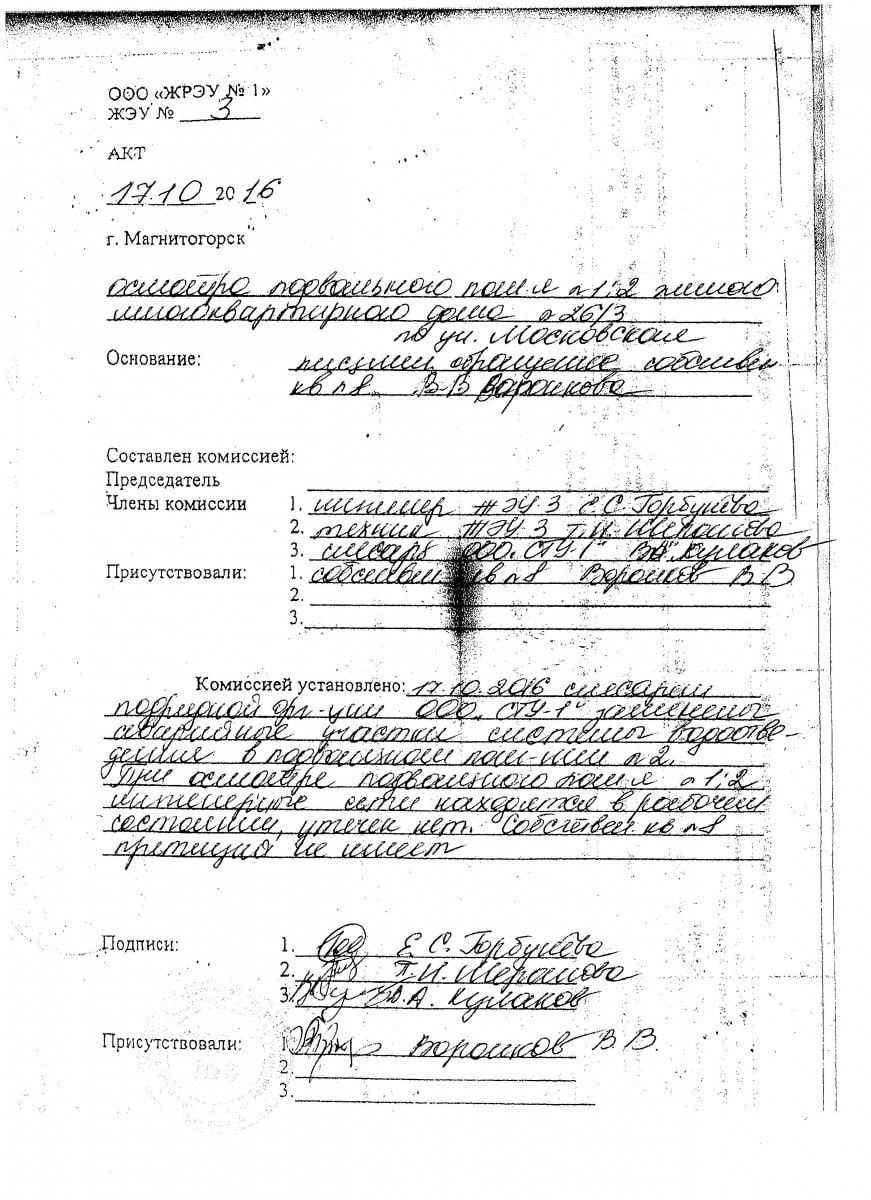 ООО «ЖРЭУ № 1»
ЖЭУ № 3
АКТ
17.10 2016
г. Магнитогорск
осмотра подвального пом-я п 1; 2 жилого
многоквартирного дома п 26/3
по ул. Московская
Основание: письмен обращение собствен
кв п 8 В.В Воронкова
Составлен комиссией:
Председатель
Члены комиссии 1. инженер ЖЭУ-3 Е.С. Горбунёва
2. техник ЖЭУ-3
3. слесарь ООО „СТУ-1" В.А. Кулаков
Присутствовали: 1. собствен кв п 8 Воронков В В
2.
3.
Комиссией установлено: 17.10.2016 слесарем
подрядной орг-ции ООО „СТУ-1" заменены
аварийные участки системы водоотве-
дения в подвальном пом-нии п 2.
При осмотре подвального пом-я п 1; 2
инженерные сети находятся в рабочем
состоянии, утечек нет. Собствен кв п 8
претензий не имеет
Подписи: 1. Е. С. Горбунёва
2.
3. В.А. Кулаков
Присутствовали: 1. Воронков В.В.
2.
3.